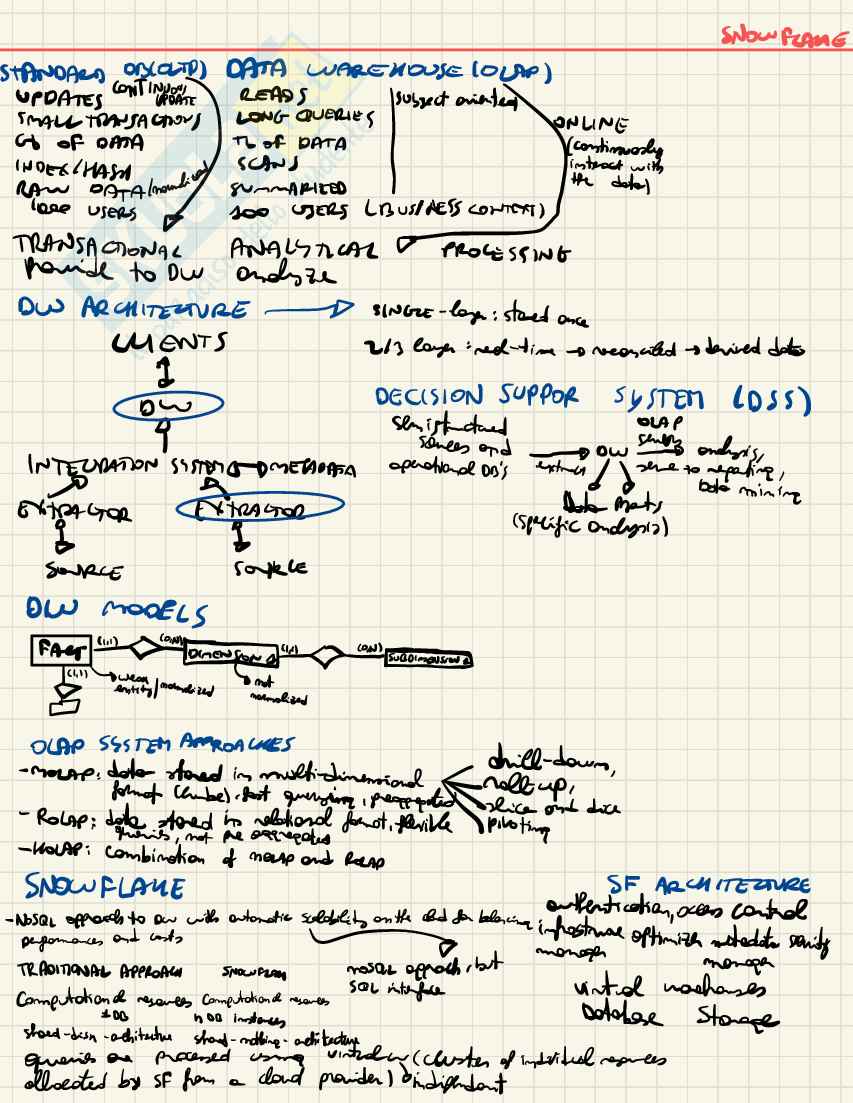 SNOWFLAKE
STANDARD DB (OLTP) DATA WAREHOUSE (OLAP)
UPDATES CONTINUOUS UPDATE READS subject oriented
SMALL TRANSACTIONS LONG QUERIES ONLINE
Gb OF DATA Tb OF DATA (continuously
INDEX/HASH SCANS interact with
RAW DATA/normalized SUMMARIZED the data)
1000 USERS 100 USERS (BUSINESS CONTEXT)
TRANSACTIONAL ANALYTICAL PROCESSING
provide to DW analyze
DW ARCHITECTURE SINGLE-layer: stored once
CLIENTS 2/3 layer: real-time → reconciled → derived data
DW
DECISION SUPPOR SYSTEM (DSS)
Semistructured
sources and
operational DB's extract DW OLAP servers analysis,
serve to reporting,
data mining
Data Marts
(specific analysis)
INTEGRATION SYSTEM METADATA
EXTRACTOR EXTRACTOR
SOURCE SOURCE
DW MODELS
FACT (1,1) (0,N) DIMENSION (1,1) (0,N) SUBDIMENSION
(1,1) weak entity/normalized not normalized
OLAP SYSTEM APPROACHES
- MOLAP: data stored in multi-dimensional
format (cube). fast querying, preaggregated
drill-down,
roll-up,
slice and dice
pivoting
- ROLAP: data stored in relational format, flexible
queries, not pre aggregates
- HOLAP: combination of MOLAP and ROLAP
SNOWFLAKE
- NoSQL approach to DW with automatic scalability on the cloud for balancing
performances and costs
noSQL approach, but
SQL interface
TRADITIONAL APPROACH SNOWFLAKE
Computational resources Computational resources
1 DB n DB instances
shared-disk-architecture shared-nothing-architecture
queries are processed using virtual DW (cluster of individual resources
allocated by SF from a cloud provider) independent
SF ARCHITECTURE
authentication, access control
infrastructure manager optimizer metadata manager security
virtual warehouses
Database Storage